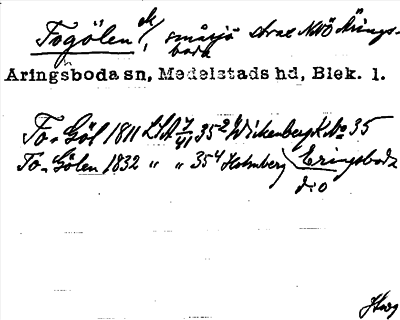 Togölen, småsjö strax NVÖ Årings-
boda
Åringsboda sn, Medelstads hd, Blek. l.
To-Göl 1811 LSA 7/41 35² Wickenberg K No 35
To-Gölen 1832 " " 35⁴ Holmberg Eringsboda